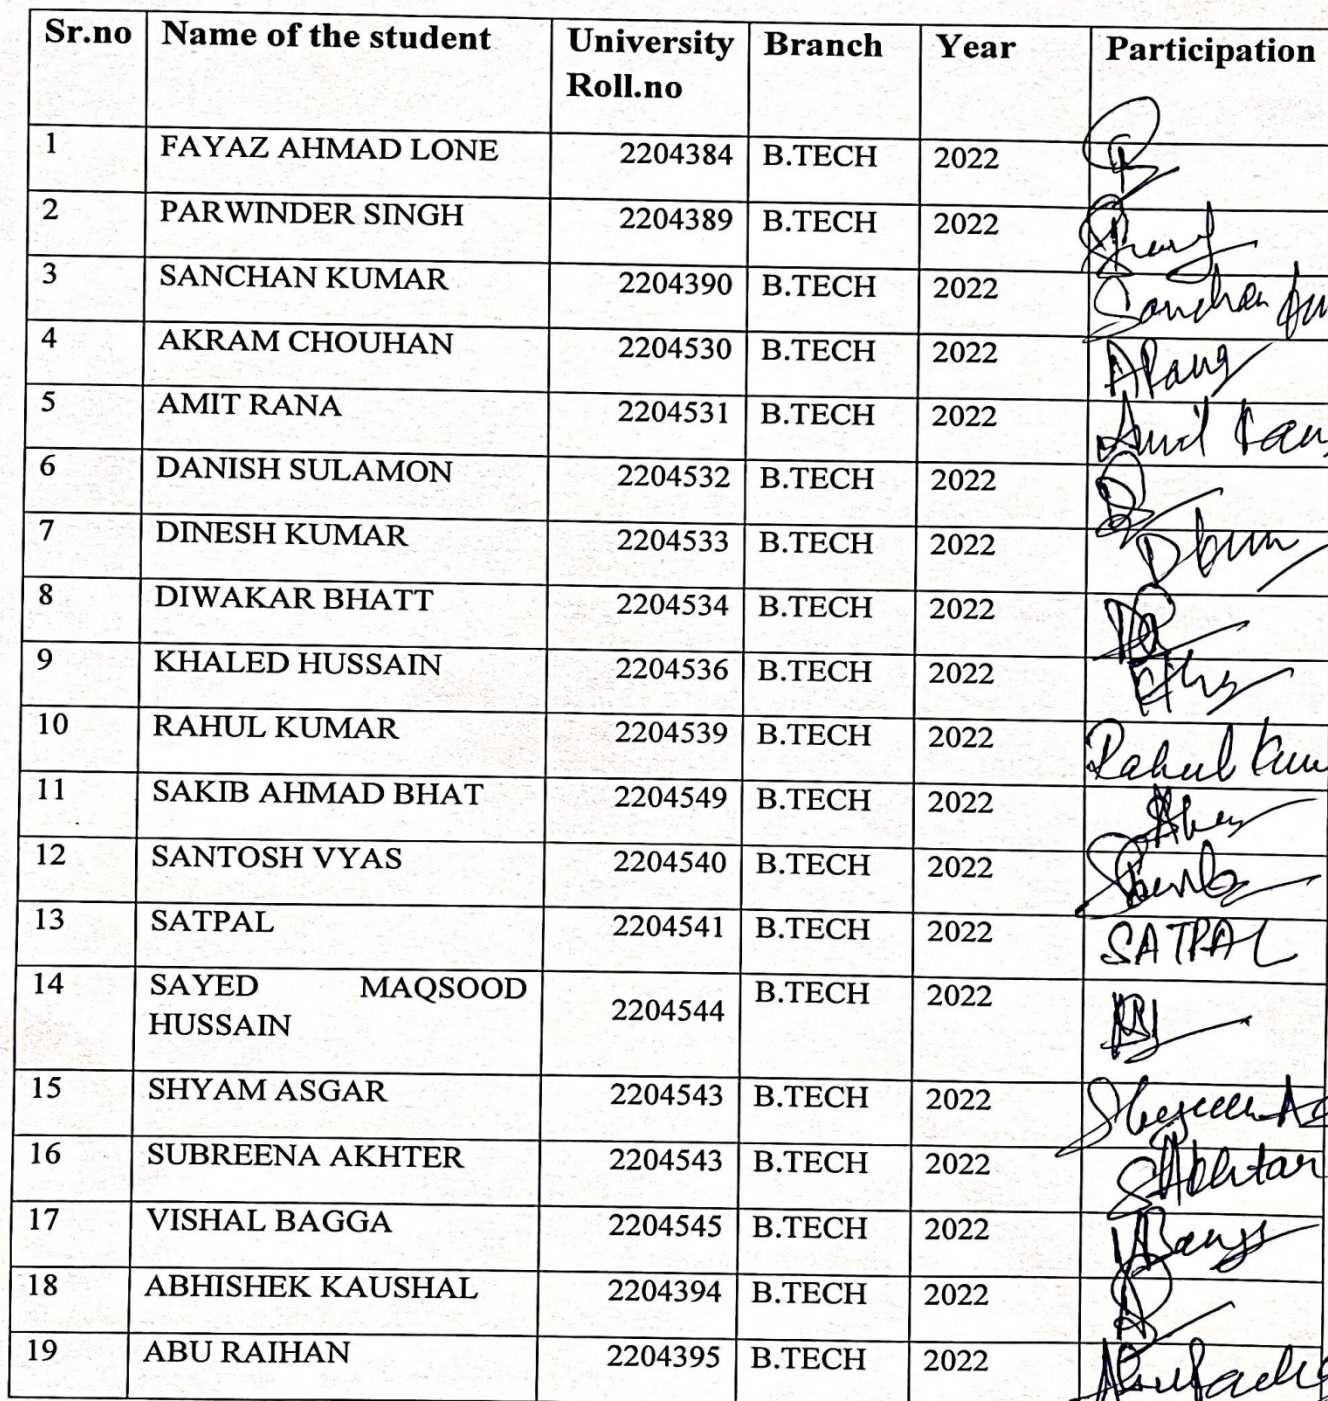 Sr.no Name of the student University Branch Year Participation
Roll.no
1 FAYAZ AHMAD LONE 2204384 B.TECH 2022
2 PARWINDER SINGH 2204389 B.TECH 2022
3 SANCHAN KUMAR 2204390 B.TECH 2022 Sanchan
4 AKRAM CHOUHAN 2204530 B.TECH 2022
5 AMIT RANA 2204531 B.TECH 2022 Amit
6 DANISH SULAMON 2204532 B.TECH 2022
7 DINESH KUMAR 2204533 B.TECH 2022
8 DIWAKAR BHATT 2204534 B.TECH 2022
9 KHALED HUSSAIN 2204536 B.TECH 2022
10 RAHUL KUMAR 2204539 B.TECH 2022 Rahul
11 SAKIB AHMAD BHAT 2204549 B.TECH 2022
12 SANTOSH VYAS 2204540 B.TECH 2022
13 SATPAL 2204541 B.TECH 2022 SATPAL
14 SAYED MAQSOOD 2204544 B.TECH 2022
HUSSAIN
15 SHYAM ASGAR 2204543 B.TECH 2022
16 SUBREENA AKHTER 2204543 B.TECH 2022 SAkhtar
17 VISHAL BAGGA 2204545 B.TECH 2022
18 ABHISHEK KAUSHAL 2204394 B.TECH 2022
19 ABU RAIHAN 2204395 B.TECH 2022